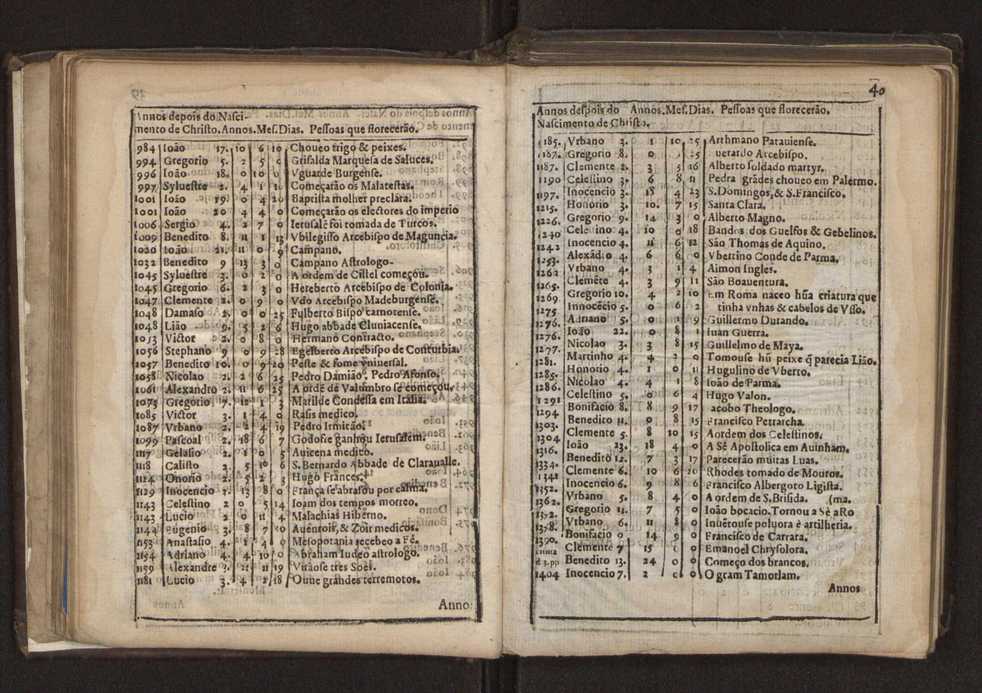 Annos depois do Nasci-
mento de Christo. Annos. Mes. Dias. Pessoas que florecerão.
984 Ioão 17. 10 6 10 Choueo trigo & peixes.
994 Gregorio 5. 2 5 0 Grisalda Marquesa de Saluces.
996 Ioão 18. 0 10 0 Vguarde Burgense.
997 Syluestre 2. 4 1 Começarão os Malatestas.
1001 Ioão 19 0 4 20 Baptista molher preclara.
1001 Ioão 20 4 4 0 Começarão os electores do imperio
1006 Sergio 4. 2 7 0 Ierusalẽ foi tomada de Turcos.
1009 Benedito 8. 11 1 13 Vbilegisso Arcebispo de Maguncia.
1020 Ioão 21. 11 0 9 Campano.
1032 Benedito 9 13 3 0 Campano Astrologo.
1045 Syluestre 3. 0 2 0 A ordem de Cistel começou.
1045 Gregorio 6. 2 3 0 Hereberto Arcebispo de Colonia.
1047 Clemente 2. 0 9 0 Vdo Arcebispo Madeburgense.
1048 Damaso 2. 0 0 25 Fulberto Bispo carnotense.
1048 Lião 9. 5 2 6 Hugo abbade Cluniacense.
1053 Victor 2 0 8 0 Hermano Contracto.
1056 Stephano 9 0 9 28 Egelberto Arcebispo de Conturbia.
1057 Benedito 10. 0 9 20 Peste & fome vniuersal.
1058 Nicolao 2. 2 6 25 Pedro Damião. Pedro Afonso.
1061 Alexandro 2. 11 6 25 A ordẽ dẽ Valumbro se começou.
1074 Gregorio 7. 12 1 3 Matilde Condessa em Italia.
1085 Victor 3. 1 4 0 Rasis medico.
1087 Vrbano 2. 2 4 19 Pedro Irmitão.
1099 Pascoal 2. 18 6 7 Godofre ganhou Ierusalem.
1117 Gelasio 2. 1 0 5 Auicena medico.
1118 Calisto 2. 5 10 6 S. Bernardo Abbade de Clarauallе.
1124 Onorio 2. 5 2 3 Hugo Frances.
1129 Inocencio 2. 13 8 0 França se abrasou por calma.
1143 Celestino 2 0 5 14 Ioam dos tempos morreo.
1143 Lucio 2 0 11 4 Malachias Hiberno.
1144 Eugenio 3. 8 7 0 Auenrois, & Zoir medicos.
1153 Anastasio 4. 1 4 0 Mesopotania recebeo a Fé.
1154 Adriano 4. 4 10 0 Abraham Iudeo astrologo.
1159 Alexandre 3. 21 11 19 Virãose tres Soes.
1181 Lucio 3. 4 2 18 Ouue grãndes terremotos.
Anno
40
Annos despois do Annos. Mes. Dias. Pessoas que florecerão.
Nascimento de Christo.
1185. Vrbano 3. 1 10 25 Arthmano Patauiense.
1187. Gregorio 8. 0 1 25 uerardo Arcebispo.
1187. Clemente 2. 3 5 16 Alberto soldado martyr.
1190 Celestino 3. 6 8 11 Pedra grãdes choueo em Palermo.
1197. Inocencio 3. 18 4 23 S. Domingos, & S. Francisco.
1215. Honorio 3. 10. 7 15 Santa Clara.
1226. Gregorio 9. 14 3 0 Alberto Magno.
1240 Celestino 4. 10 0 18 Bandos dos Guelfos & Gebelinos.
1242 Inocencio 4. 11 6 12 São Thomas de Aquino.
1253. Alexãdio 4. 6 6 0 Vbertino Conde de Parma.
1262 Vrbano 4. 3 1 4 Aimon Ingles.
1265. Clemẽte 4. 3 9 11 São Boauentura.
1269 Gregorio 10. 4 2 10 Em Roma naceo hũa criatura que
1275 Innocẽcio 5. 0 6 2 tinha vnhas & cabelos de Vsso.
1276. Adriano 5. 0 1 9 Guillermo Durando.
1276. Ioão 22. 0 8 1 Iuan Guerra.
1277. Nicolao 3. 3 8 15 Guillelmo de Maya.
1281. Martinho 4. 4 2 0 Tomouse hũ peixe q̃ parecia Lião.
1285. Honorio 4. 1 0 11 Hugulino de Vberto.
1286. Nicolao 4. 4 1 8 Ioão de Parma.
1291 Celestino 5. 0 6 4 Hugo Valon.
1294 Bonifacio 8. 8 9 17 acobo Theologo.
1303. Benedito 11. 0 8 15 Francisco Petrarcha.
1304 Clemente 5. 8 10 15 A ordem dos Celestinos.
1316. Ioão 23. 18 4 0 A Sé Apostolica em Auinham.
1334. Benedito 12. 7 3 17 Parecerão muitas Luas.
1342 Clemente 6. 10 6 20 Rhodes tomado de Mouros.
1352. Inocencio 6. 9 8 6 Francisco Albergoto Ligista.
1362. Vrbano 5. 8 4 0 A ordem de S. Brisida. (ma.
1372. Gregorio 11. 7 5 0 Ioão bocacio. Tornou a Sé a Ro
1378. Vrbano 6. 11 8 0 Inuẽtouse poluora ẽ artilheria.
1390. Bonifacio 9 14 9 0 Francisco de Carrara.
Clemente 7 15 0 Emanoel Chrysolora.
Benedito 13. 24 0 0 Começo dos brancos.
1404 Inocencio 7. 2 0 0 O gram Tamorlam.
Annos